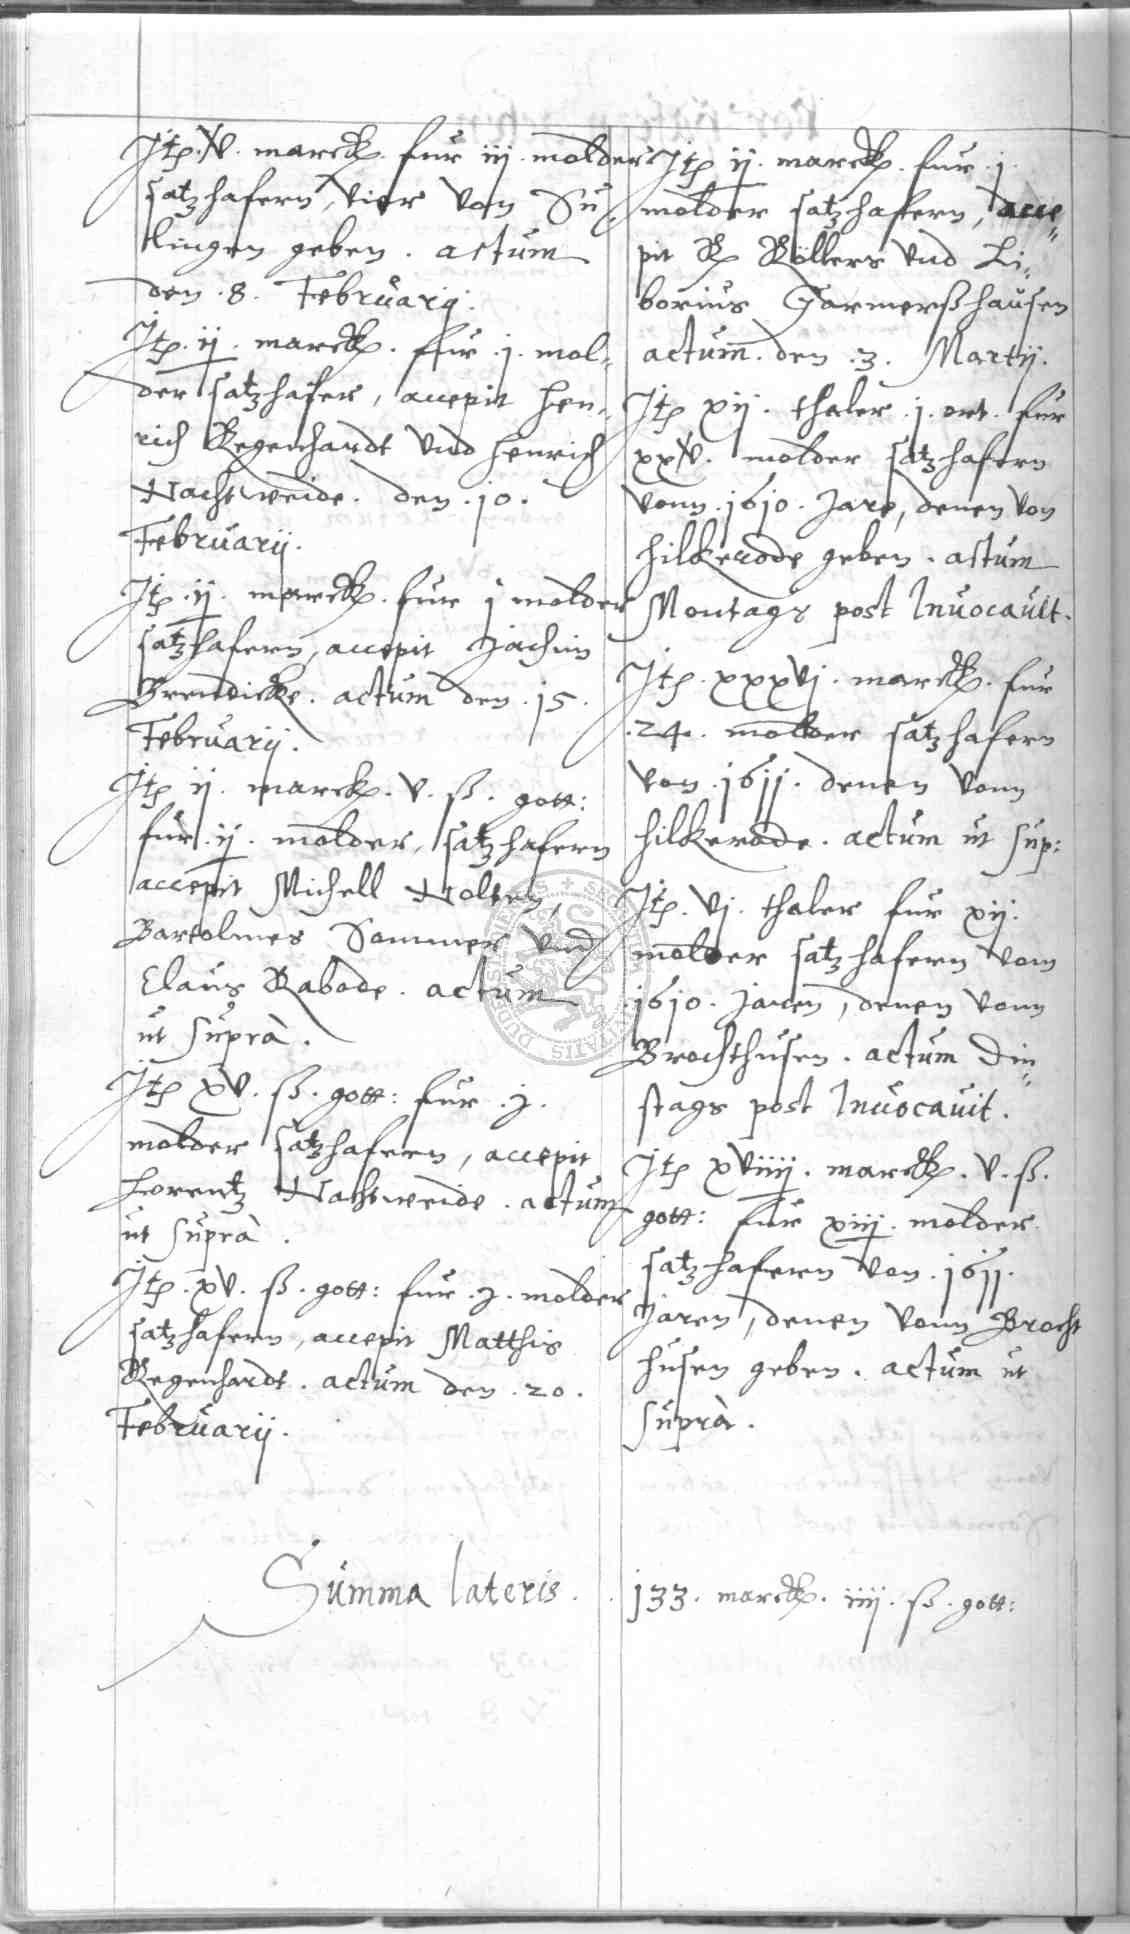 Itz .xv. marck. fur iij molder
satzhafern, vier von Su¬
lingen geben. actum
den .8. Februarij.
Itz .ij. marck. fur .j. mol¬
der satzhafer, accepit Hen¬
rich Regenhardt vnd Henrich
Nachtweide. den .10.
Februarij.
Itz .ij. marck. fur j molder
satzhafern, accepit Jachim
Brendicke. actum den .15.
Februarij.
Itz ij. marck. v. ß. gott:
fur .ij. molder, satzhafern
accepit Michell Nolten,
Bartolmes Sommer vnd
Claus Rabode. actum
ut suprà.
Itz xv. ß. gott: fur .j.
molder satzhafern, accepit
Lorentz Nachtweide. actum
ut suprà.
Itz .xv. ß. gott: fur .j. molder
satzhafern, accepit Matthis
Regenhardt. actum den .20.
Februarij.
Itz ij. marck. fur .j.
molder satzhafern, acce¬
pit Röllers vnd Li¬
borius Garmerßhausen
actum. den .3. Martij.
Itz xij. thaler .j. ort. fur
xxv. molder satzhafern
vonn .1610. Jare, denen von
Hilkerode geben. actum
Montags post Invocavit.
Itz .xxxvj. marck. fur
.24. molder satzhafern
von .1611. denen vonn
Hilkerode. actum ut sup:
Itz. vj. thaler fur xij.
molder satzhafern vom
1610. Jaren, denen vonn
Brochthusen. actum Din¬
stags post Invocavit.
Itz xviiij. marck. v. ß.
gott: fur xiij. molder
satzhafern von .1611.
Jaren, denen vonn Brocht
husen geben. actum ut
suprà.
Summa lateris. . 133. marck. iiij. ß. gott: